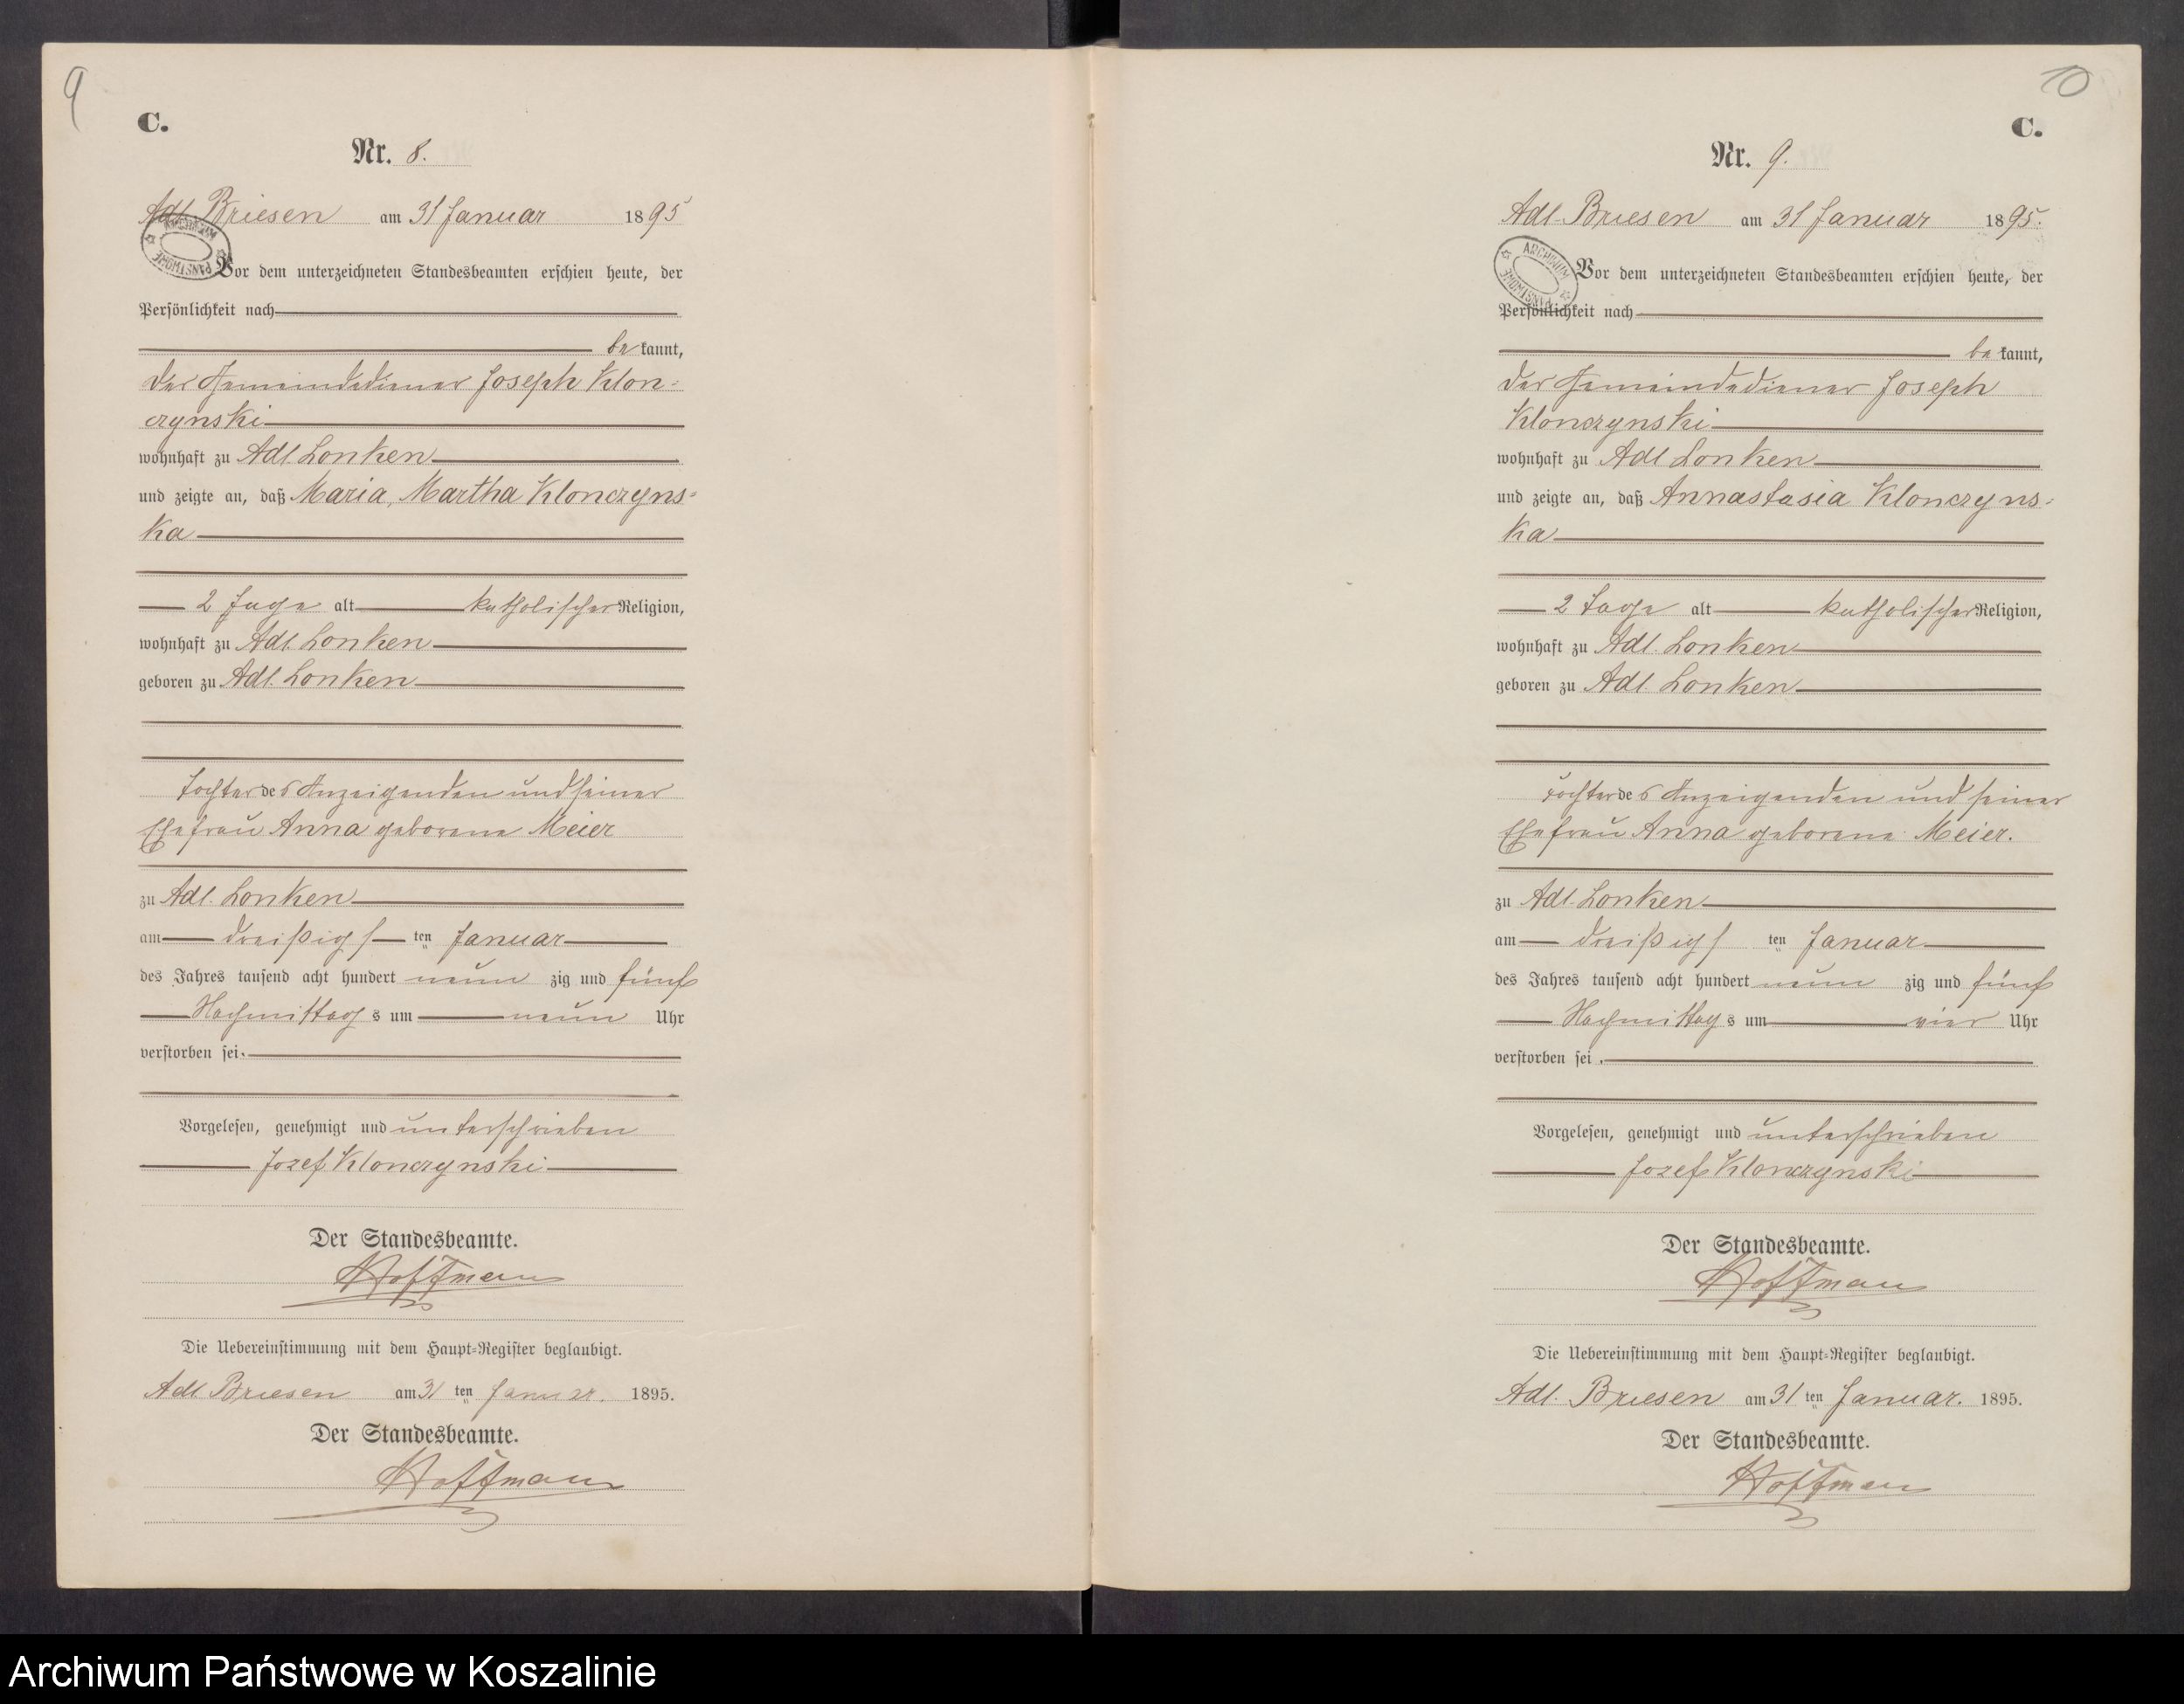 9
C.
Nr. 8.
Adl. Briesen am 31 Januar 1895
ARCHIWUM PAŃSTWOWE
Vor dem unterzeichneten Standesbeamten erschien heute, der
Persönlichkeit nach
bekannt,
der Gemeindediener Joseph Klon-
czynski
wohnhaft zu Adl. Lonken
und zeigte an, daß Maria, Martha Klonczyns-
ka
2 Tage alt katholischer Religion,
wohnhaft zu Adl. Lonken
geboren zu Adl. Lonken
Tochter des Anzeigenden und seiner
Ehefrau Anna geborene Meier
zu Adl. Lonken
am dreißigsten Januar
des Jahres tausend acht hundert neunzig und fünf
Nachmittags um neun Uhr
verstorben sei.
Vorgelesen, genehmigt und unterschrieben
Jozef Klonczynski
Der Standesbeamte.
Hoffman
Die Uebereinstimmung mit dem Haupt-Register beglaubigt.
Adl. Briesen am 31 ten Januar. 1895.
Der Standesbeamte.
Hoffman
10
C.
Nr. 9.
Adl. Briesen am 31 Januar 1895.
ARCHIWUM PAŃSTWOWE
Vor dem unterzeichneten Standesbeamten erschien heute, der
Persönlichkeit nach
bekannt,
der Gemeindediener Joseph
Klonczynski
wohnhaft zu Adl Lonken
und zeigte an, daß Annastasia Klonczyns-
ka
2 Tage alt katholischer Religion,
wohnhaft zu Adl. Lonken
geboren zu Adl. Lonken
Tochter des Anzeigenden und seiner
Ehefrau Anna geborene Meier.
zu Adl. Lonken
am dreißigsten Januar
des Jahres tausend acht hundert neunzig und fünf
Nachmittags um vier Uhr
verstorben sei.
Vorgelesen, genehmigt und unterschrieben
Jozef Klonczynski
Der Standesbeamte.
Hoffman
Die Uebereinstimmung mit dem Haupt-Register beglaubigt.
Adl. Briesen am 31 ten Januar. 1895.
Der Standesbeamte.
Hoffman
Archiwum Państwowe w Koszalinie